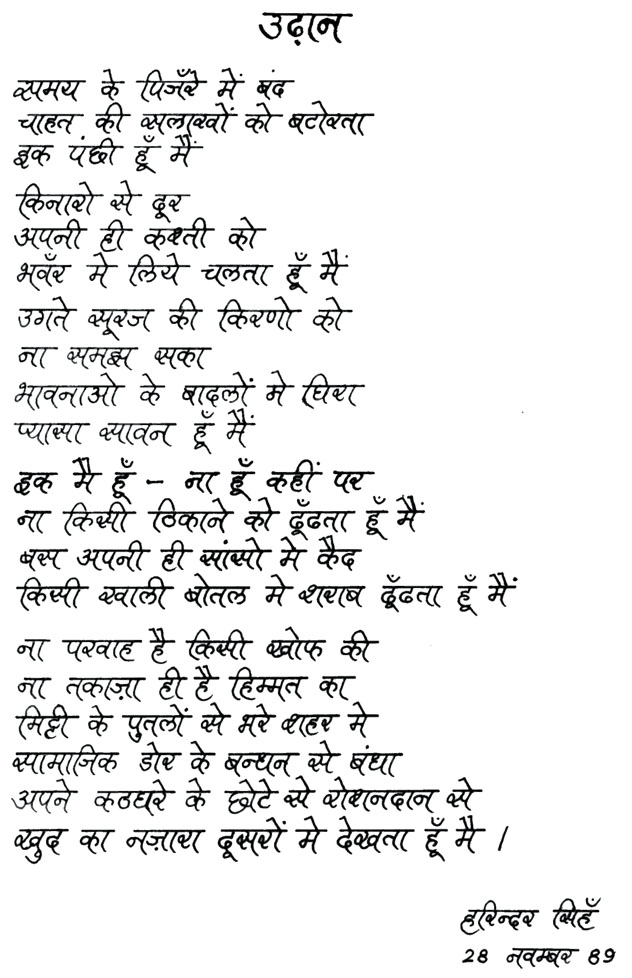 उढ़ान
समय के पिजँरे में बंद
चाहत की सलाखों को बटोरता
इक पंछी हूँ मैं
किनारो से दूर
अपनी ही कश्ती को
भवँर मे लिये चलता हूँ मैं
उगते सूरज की किरणो को
ना समझ सका
भावनाओ के बादलों मे घिरा
प्यासा सावन हूँ मैं
इक मै हूँ – ना हूँ कहीं पर
ना किसी ठिकाने को ढूँढता हूँ मैं
बस अपनी ही सांसो मे कैद
किसी खाली बोतल मे शराब ढूँढता हूँ मैं
ना परवाह है किसी खोफ की
ना तकाज़ा ही है हिम्मत का
मिट्टी के पुतलों से भरे शहर मे
सामाजिक डोर के बन्धन से बंधा
अपने कठघरे के छोटे से रोशनदान से
खुद का नज़ारा दूसरों मे देखता हूँ मै ।
हरिन्दर सिहँ
28 नवम्बर 89